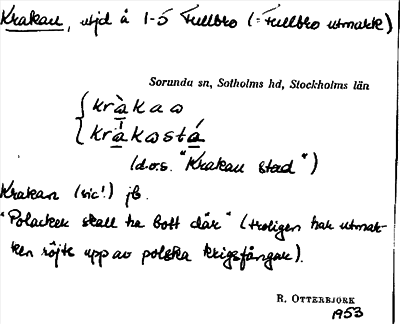 Krakau, utjd å 1-5 Fullbro (= Fullbro utmark)
Sorunda sn, Sotholms hd, Stockholms län
kràkaɷ
krà̱kɷstá̱
(d.v.s. "Krakau stad")
Krakau (sic!) jb.
"Polacker skall ha bott där" (troligen har utmar-
ken röjts upp av polska krigsfångar).
R. OTTERBJÖRK
1953